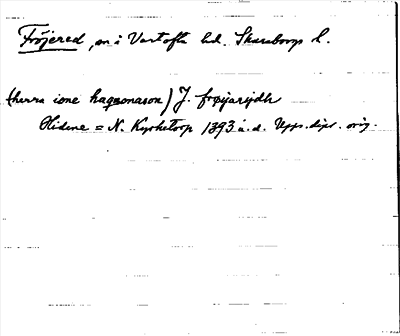 Fröjered, sn i Vartofta hd. Skaraborgs l.
(herra ione haquonason) J. frøyarydh
= N. Kyrketorp 1393 u.d. Upps. dipl. orig.